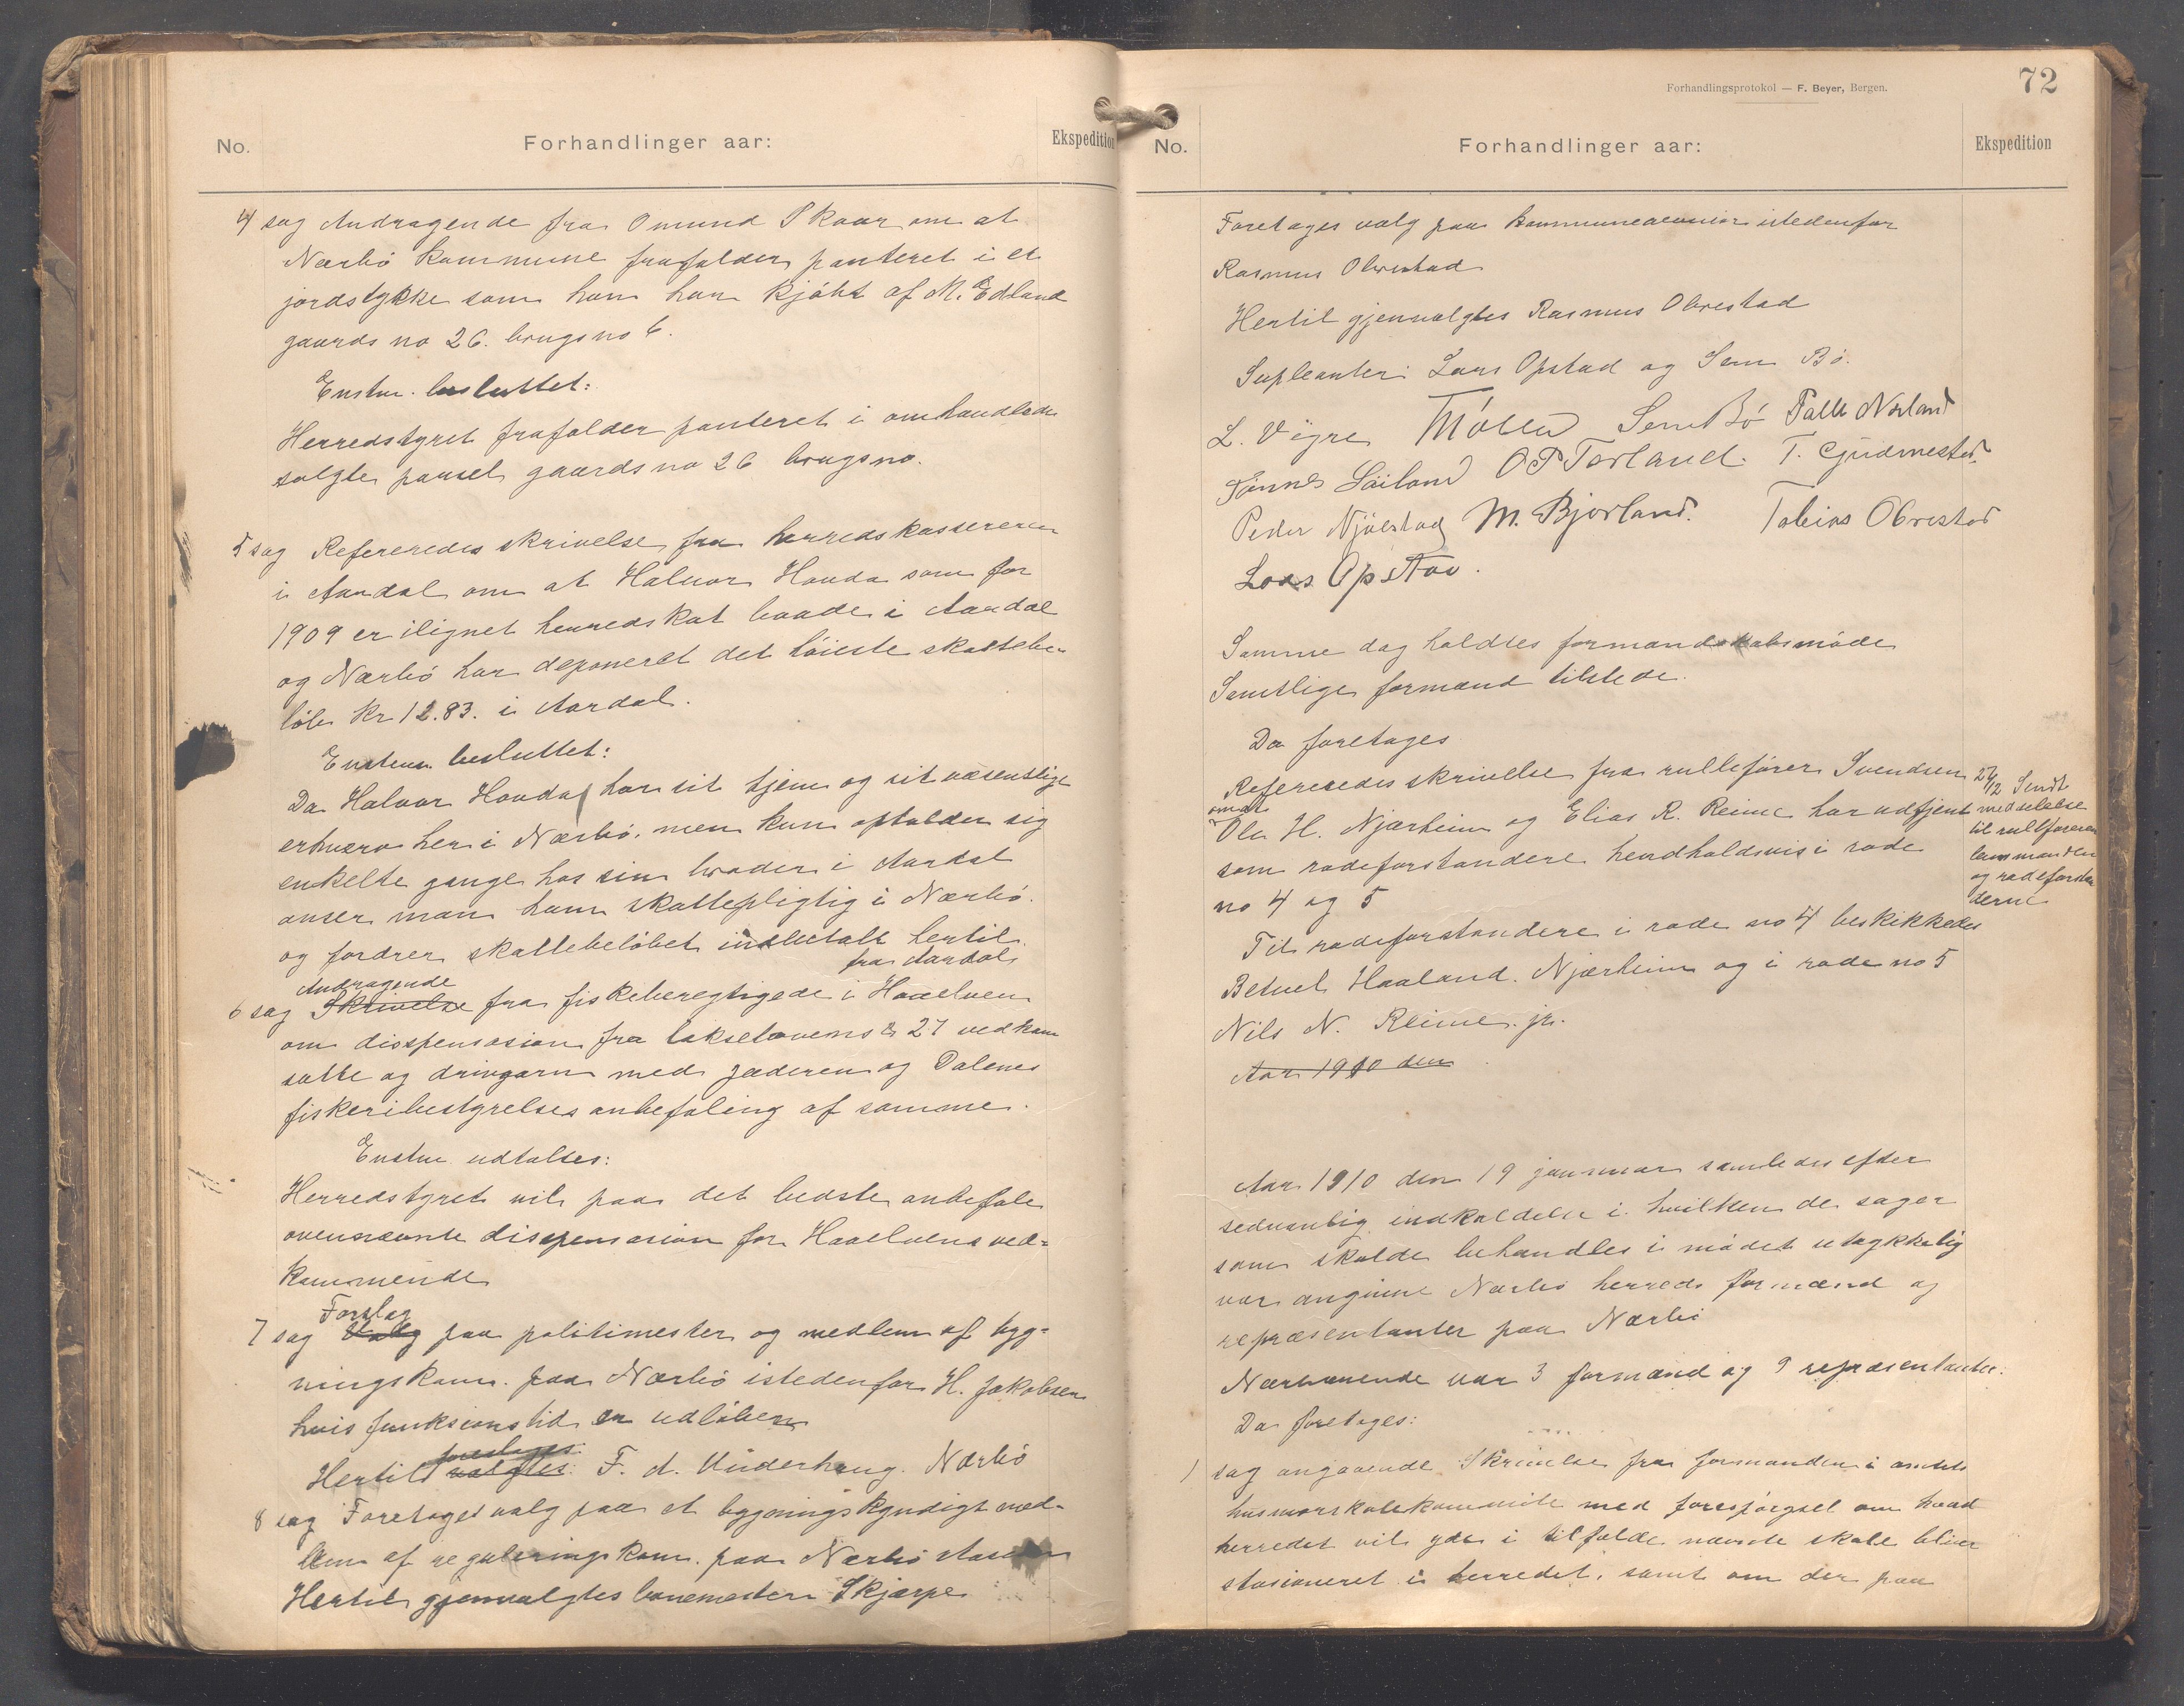 No. Forhandlinger aar: Ekspedition
4 sag Andragende fra Omund Skaar om at
Nærbø kommune frafalder panteret i et
jordstykke som han har kjøbt af M. Edland
gaards no 26. brugs no 6.
Enstm. besluttet:
Herredstyret frafalder panteret i omhandlede
solgte parsel gaards no 26 brugsno.
5 sag Refereredes skrivelse fra herredskassereren
i Aardal om at Halvor Houda som for
1909 er ilignet herredskat baade i Aardal
og Nærbø har deponeret det høieste skattebe-
løb kr 12.83. i Aardal.
Enstem besluttet:
Da Halvor Houda har sit hjem og sit væsentlige
erhverv her i Nærbø, men kun opholder sig
enkelte gange hos sin broder i Aardal
anser man ham skattepligtig i Nærbø.
og fordrer skattebeløbet indbetalt hertil
fra Aardal
Andragende
6 sag Skrivelse fra fiskeberegtigede i Haaelven
om disspensasion fra lakselovens § 27 vedkom
satte og drivgarn med Jæderen og Dalenes
fiskeribestyrelses anbefaling af samme.
Enstm udtaltes:
Herredstyret vil paa det bedste anbefale
ovennævnte disspensasion for Haaelvens ved-
kommende
Forslag
7 sag Valg paa politimester og medlem af byg-
ningskom. paa Nærbø istedenfor H. Jakobsen
hvis funksionstid er udløben
foreslages:
Hertil valgtes: F. A. Underhaug. Nærbø
8 sag Foretages valg paa et bygningskyndigt med-
lem af reguleringskom. paa Nærbø
Hertil gjenvalgtes banemester Skjærpe
Forhandlingsprotokol — F. Beyer, Bergen.
72
No. Forhandlinger aar: Ekspedition
Foretages valg paa kommunerevisor istedenfor
Rasmus Obrestad
Hertil gjenvalgtes Rasmus Obrestad
Supleanter: Lars Opstad og Sem Bø.
L. Vigre Sem Bø Palle Norland
Tønnes Løiland O P Torland. T. Gudmestad
Peder Njølstad M. Bjorland. Tobias Obrestad
Lars Opstad.
Samme dag holdtes formandskabsmøde
Samtlige formænd tilstede.
Da foretages
Refereredes skrivelse fra rullefører Svendsen
om at
Ole H. Njærheim og Elias R. Reime har udtjent
som rodeforstandere hendholdsvis i rode
no 4 og 5
27/12 Sendt
meddelelse
til rullføreren
lensmanden
og rodeforstan
derne
Til rodeforstandere i rode no 4 beskikkedes
Betuel Haaland. Njærheim og i rode no 5
Nils N. Reime. jr.
Aar 1910 den
Aar 1910 den 19 januar samledes efter
sedvanlig indkaldelse i hvilken de sager
som skulde behandles i mødet utøkkelig
var angivne Nærbø herreds formænd og
repræsentanter paa Nærbø
Nærværende var 3 formænd og 9 repræsentanter:
Da foretages:
1 sag angaaende Skrivelse fra formanden i amtets
husmorskolekomite med forespørgsel om hvad
herredet vil yde i tilfælde nævnte skole bliver
stasioneret i herredet, samt om der paa